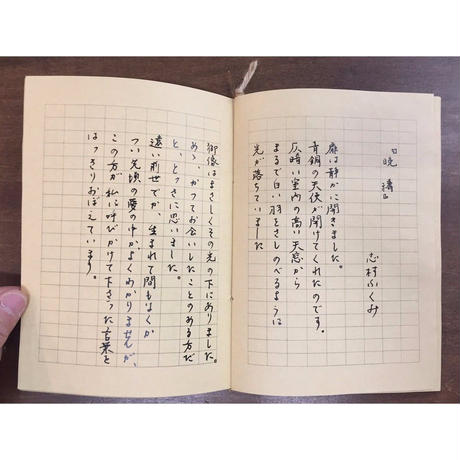 暁 禱
志村ふくみ
扉は静かに開きました。
青銅の天使が開けてくれたのです。
仄暗い室内の高い天窓から
まるで白い羽をさしのべるように
光が落ちていました
御像はまさしくその光の下にありました。
あゝ かつてお会いしたことのある方だ
と、とっさに思いました。
遠い前世でか、生まれて間もなくか
つい先頃の夢の中か、よくわかりませんが、
この方が私に呼びかけて下さった言葉を
はっきりおぼえています。